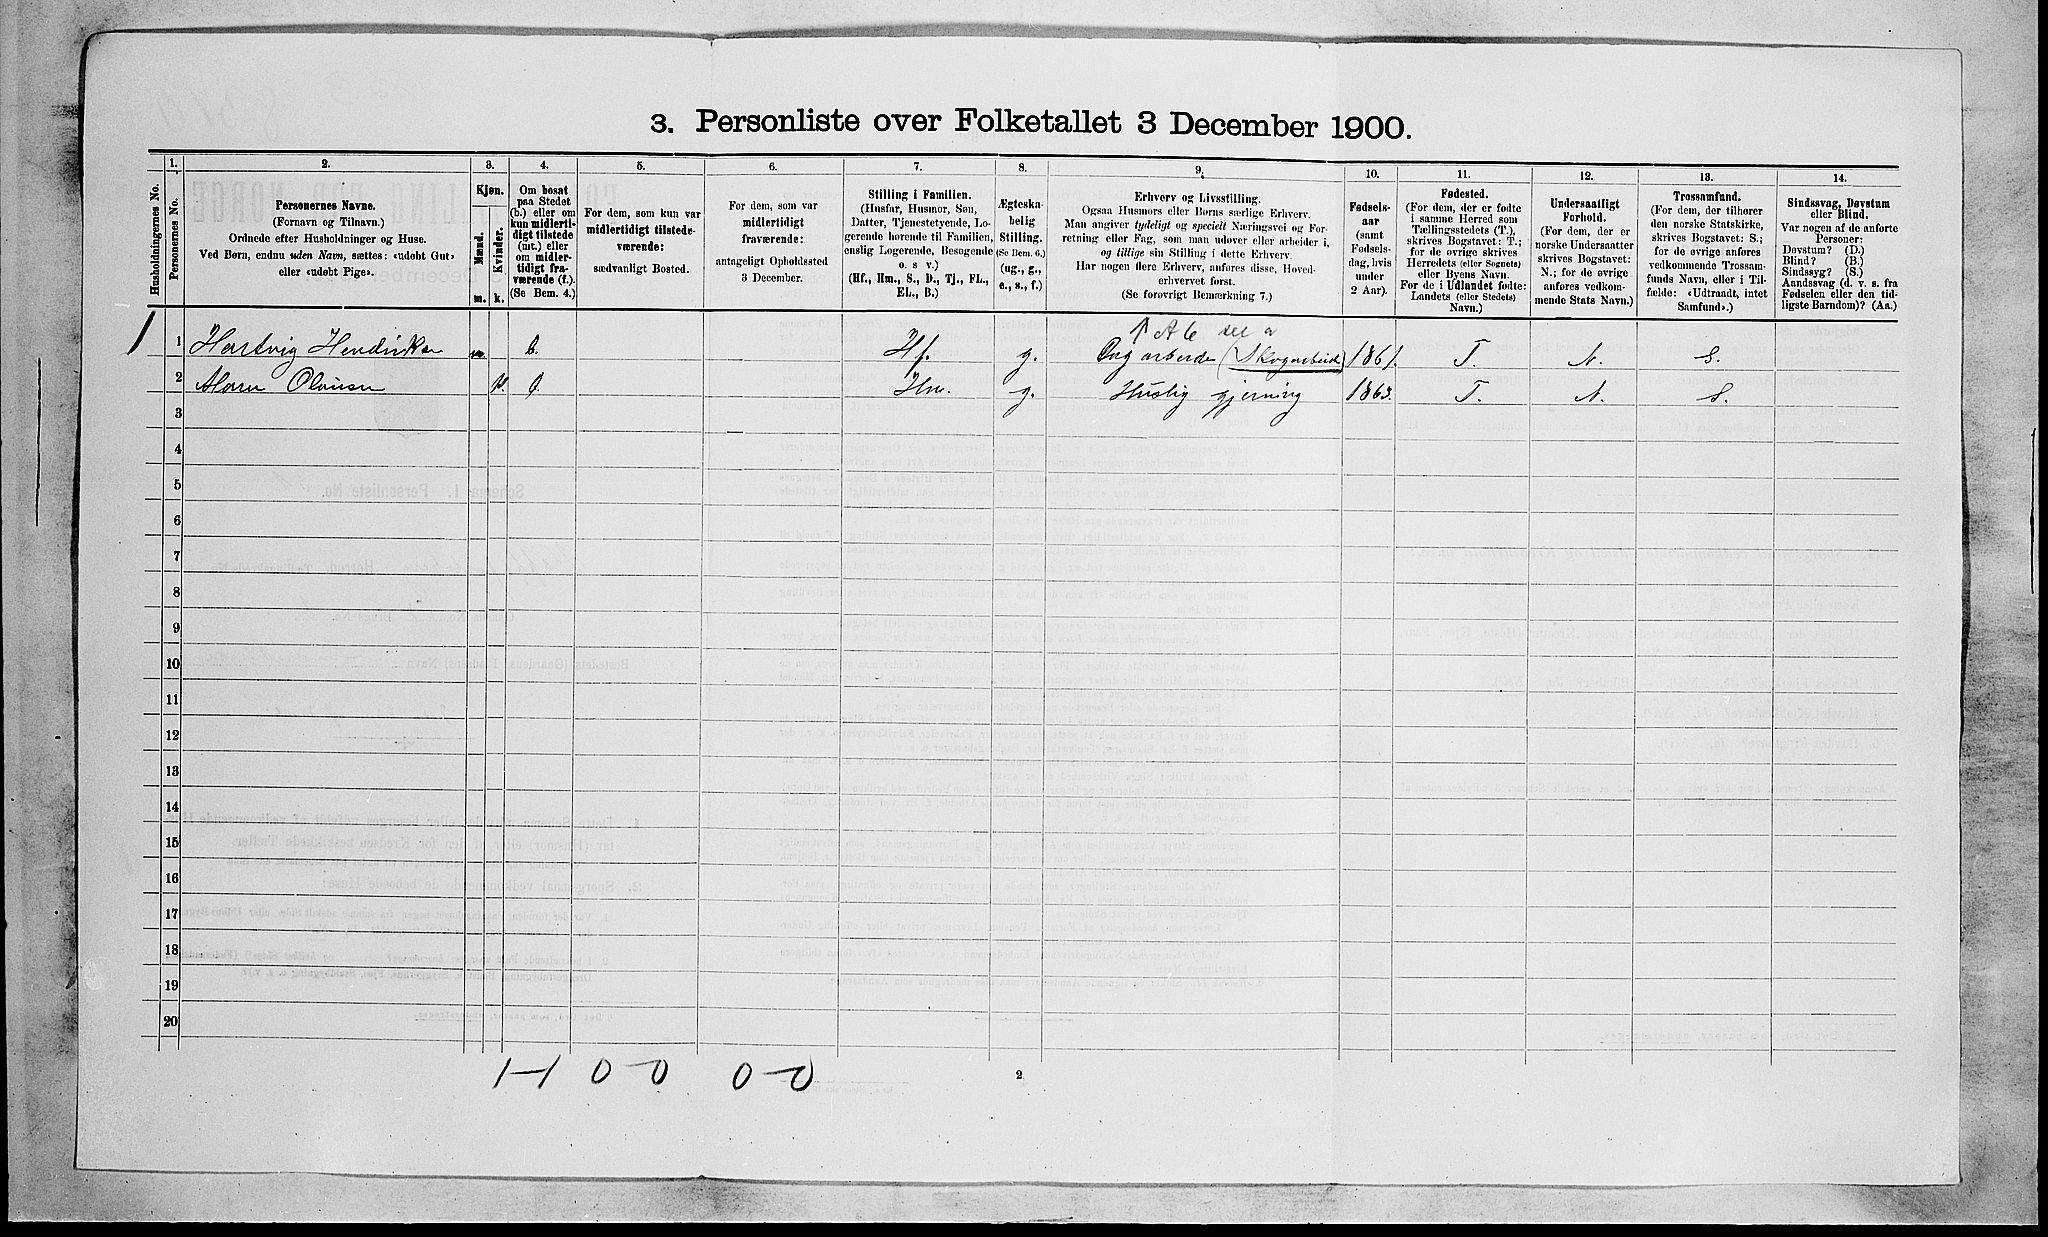 3. Personliste over Folketallet 3 December 1900.
1. 2. 3. 4. 5. 6. 7. 8. 9. 10. 11. 12. 13. 14.
Husholdningernes No.
Personernes No.
Personernes Navne.
(Fornavn og Tilnavn.)
Ordnede efter Husholdninger og Huse.
Ved Børn, endnu uden Navn, sættes: «udøbt Gut»
eller «udøbt Pige».
Kjøn.
Mænd.
Kvinder.
m. k.
Om bosat
paa Stedet
(b.) eller om
kun midlerti-
digt tilstede
(mt.) eller
om midler-
tidigt fra-
værende (f.).
(Se Bem. 4.)
For dem, som kun var
midlertidigt tilstede-
værende:
sædvanligt Bosted.
For dem, som var
midlertidigt
fraværende:
antageligt Opholdssted
3 December.
Stilling i Familien.
(Husfar, Husmor, Søn,
Datter, Tjenestetyende, Lo-
gerende hørende til Familien,
enslig Logerende, Besøgende
o. s v.)
(Hf., Hm., S., D., Tj., FL.,
EL., B.)
Ægteska-
belig
Stilling.
(Se Bem. 6.)
(ug., g.,
e., s., f.)
Erhverv og Livsstilling.
Ogsaa Husmors eller Børns særlige Erhverv.
Man angiver tydeligt og specielt Næringsvei og For-
retning eller Fag, som man udøver eller arbeider i,
og tillige sin Stilling i dette Erhverv.
Har nogen flere Erhverv, anføres disse, Hoved-
erhvervet først.
(Se forøvrigt Bemærkning 7.)
Fødsels-
aar
(samt
Fødsels-
dag, hvis
under
2 Aar).
Fødested.
(For dem, der er fødte
i samme Herred som
Tællingsstedets (T.),
skrives Bogstavet: T.;
for de øvrige skrives
Herredets (eller Sognets)
eller Byens Navn.
For de i Udlandet fødte:
Landets (eller Stedets)
Navn.)
Undersaatligt
Forhold.
(For dem, der er
norske Undersaatter
skrives Bogstavet:
N.; for de øvrige
anføres vedkom-
mende Stats Navn.)
Trossamfund.
(For dem, der tilhører
den norske Statskirke,
skrives Bogstavet: S.;
for de øvrige anføres
vedkommende Trossam-
funds Navn, eller i Til-
fælde: «Udtraadt, intet
Samfund».)
Sindssvag, Døvstum
eller Blind.
Var nogen af de anførte
Personer:
Døvstum? (D.)
Blind? (B.)
Sindssyg? (S.)
Aandssvag (d. v. s. fra
Fødselen eller den tid-
ligste Barndom)? (Aa.)
1 1 Hartvig m. b. Hf. g. 1861. T. N. S.
2 Olousen k. b. Hm. g. Huslig gjerning 1863. T. N. S.
3
4
5
6
7
8
9
10
11
12
13
14
15
16
17
18
19
20
1-1 0 0 0-0
2